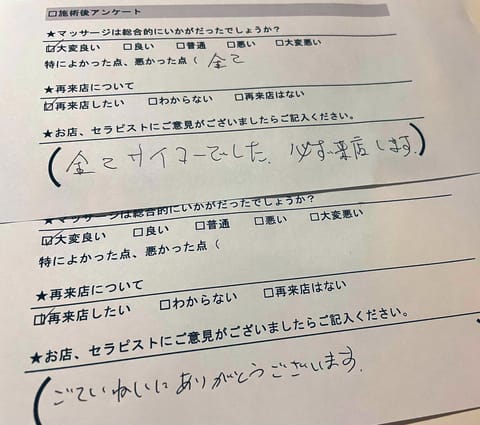 □施術後アンケート
★マッサージは総合的にいかがだったでしょうか?
☑大変良い □良い □普通 □悪い □大変悪い
特によかった点、悪かった点( 全て
★再来店について
☑再来店したい □わからない □再来店はない
★お店、セラピストにご意見がございましたらご記入ください。
(全てサイコーでした。必ず来店します。)
★マッサージは総合的にいかがだったでしょうか?
☑大変良い □良い □普通 □悪い □大変悪い
特によかった点、悪かった点(
★再来店について
☑再来店したい □わからない □再来店はない
★お店、セラピストにご意見がございましたらご記入ください。
(ごていねいにありがとうございます。